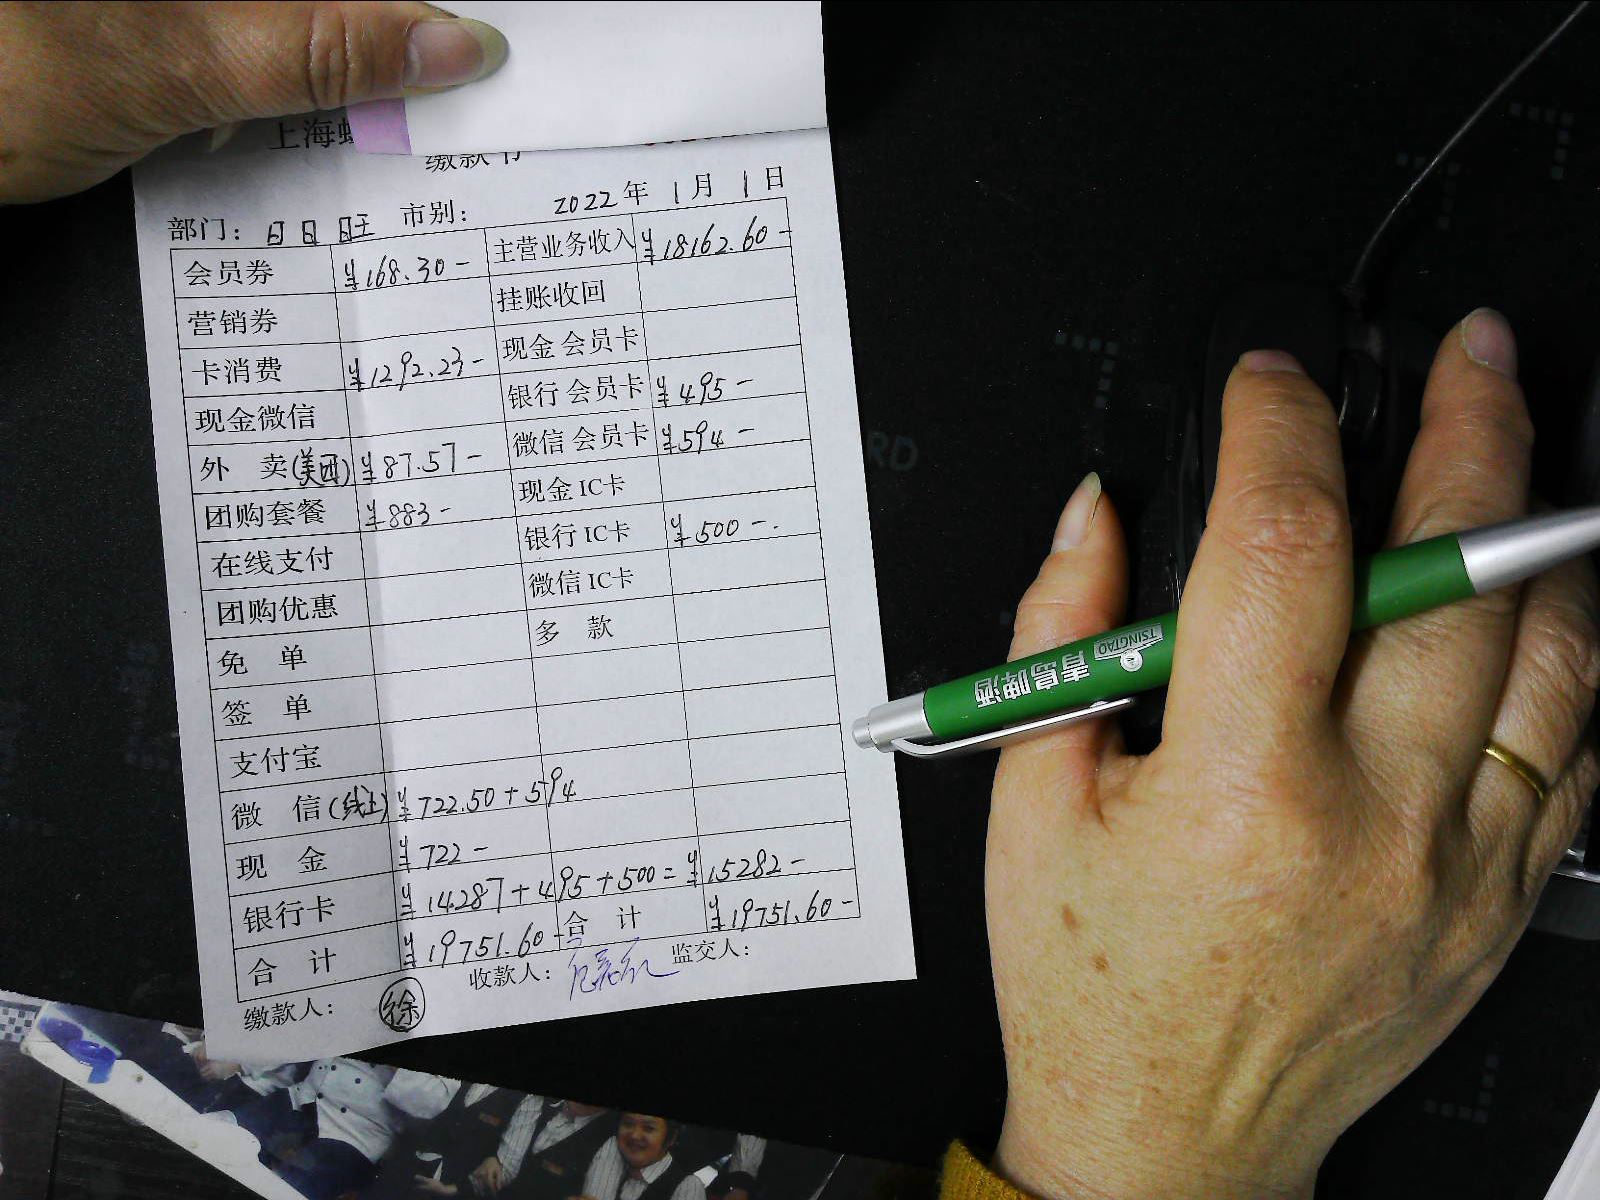 上海
缴款书
部门: 日日旺 市别: 2022年 1月 1日
会员券 ¥168.30- 主营业务收入 ¥18162.60-
营销券 挂账收回
卡消费 ¥1292.23- 现金 会员卡
现金微信 银行 会员卡 ¥495-
外 卖(美团) ¥87.57- 微信 会员卡 ¥594-
团购套餐 ¥883- 现金 IC卡
在线支付 银行 IC卡 ¥500-.
团购优惠 微信 IC卡
免 单 多 款
签 单
支付宝
微 信(线上) ¥722.50+594
现 金 ¥722-
银行卡 ¥14287+495+500=¥15282-
合 计 ¥19751.60- 合 计 ¥19751.60-
缴款人: 徐 收款人: 监交人:
青岛啤酒
TSINGTAO